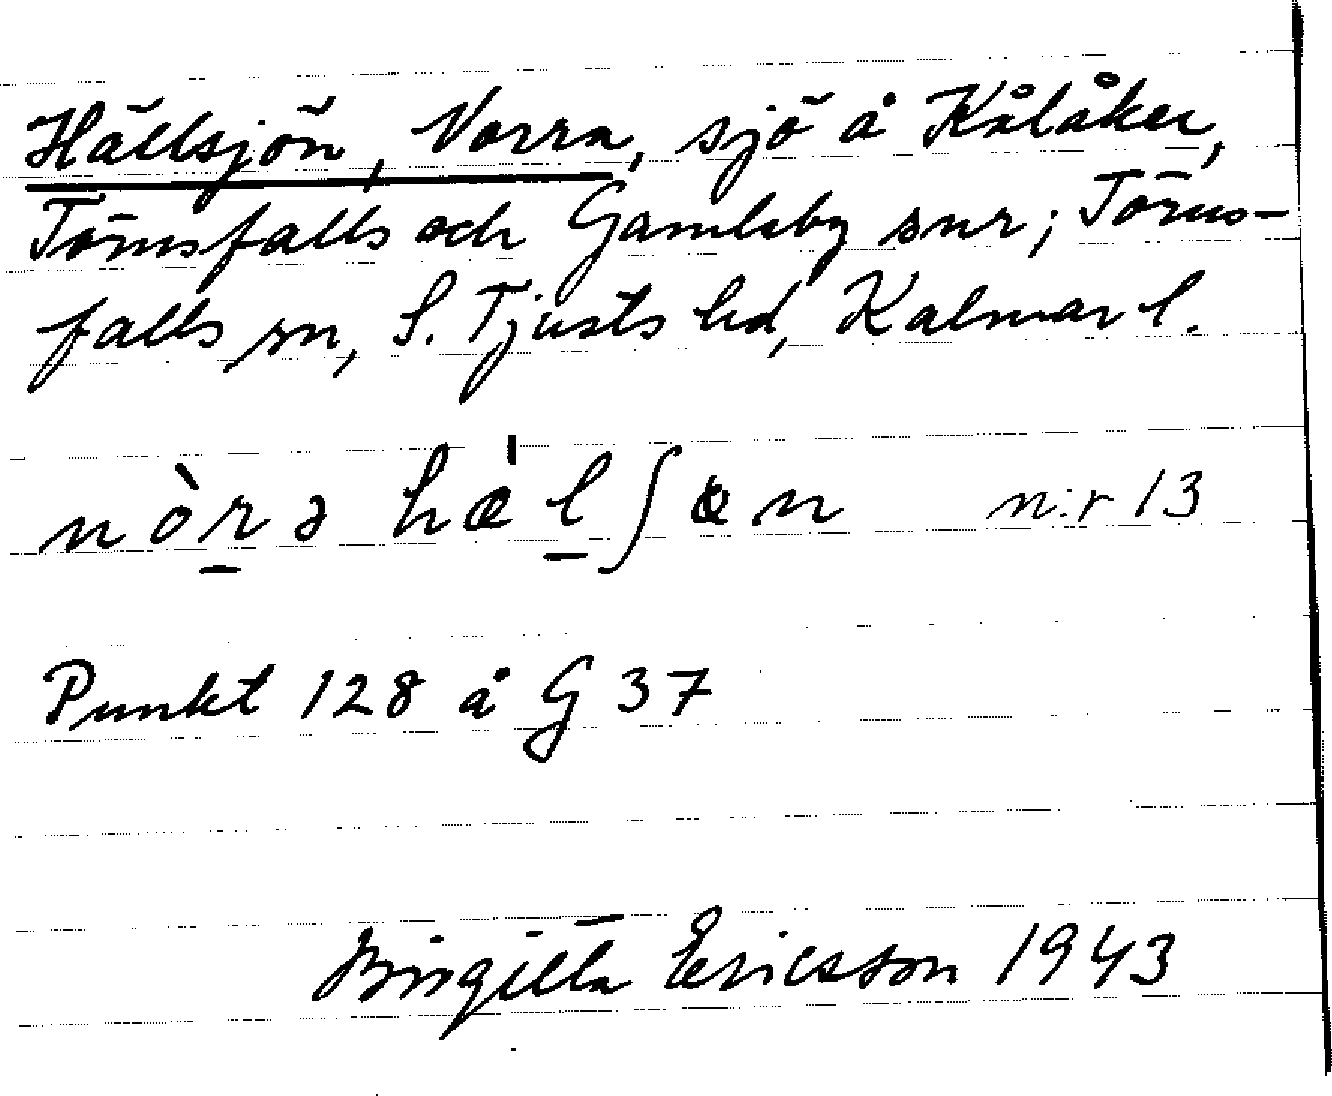 Hällsjön, Norra, sjö å Kålåker,
Törnsfalls och Gamleby snr; Törns-
falls sn, S. Tjusts hd, Kalmar l.
nòrə hæ̍lʃən n:r 13
Punkt 128 å G 37
Birgitta Ericsson 1943